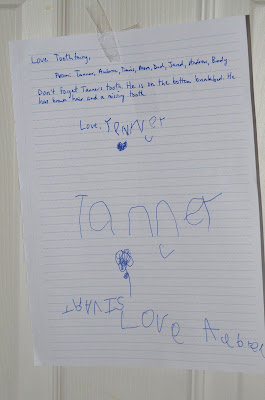 Love Toothfairy,
From: Tanner, Aubree, Travis, Mom, Dad, Jared, Andrew, Brody
Don't forget Tanner's tooth. He is on the bottom bunkbed. He
has brown hair and a missing tooth.
Love, Tanner
Tanner
TRAVIS
Love